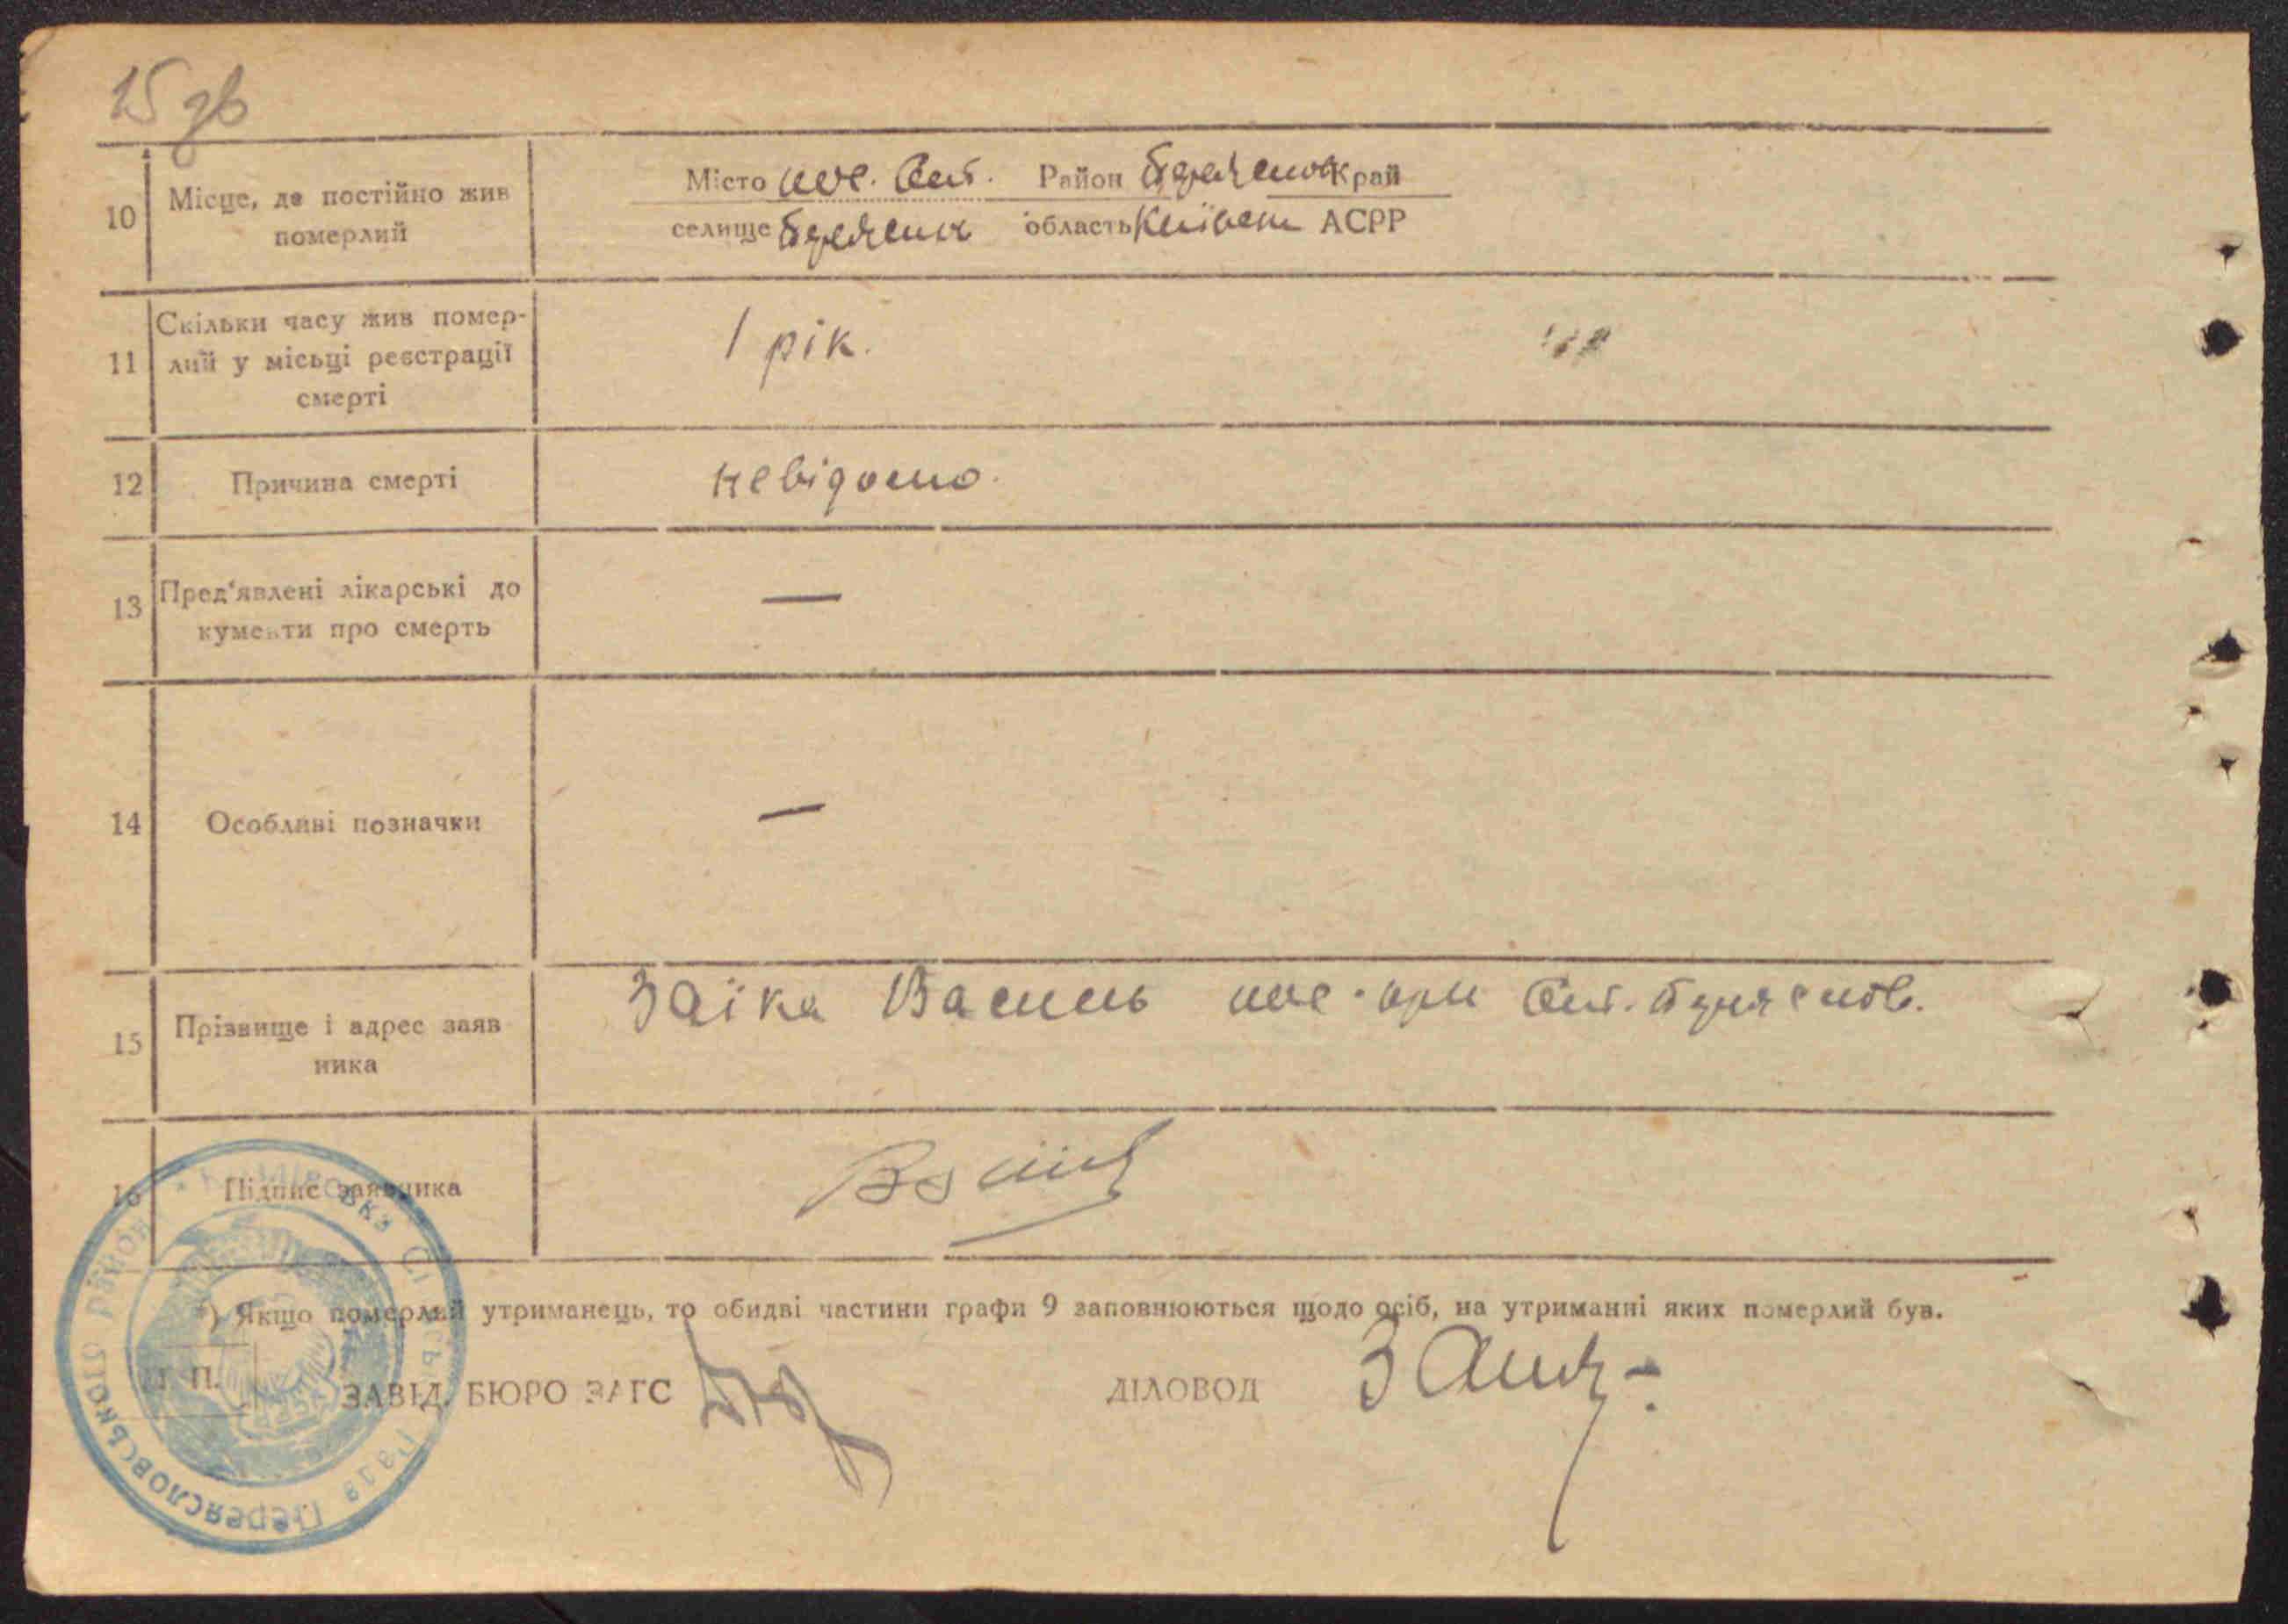 15 зв
10 Місце, де постійно жив померлий
Місто Район Край
селище область Київськ АСРР
11 Скільки часу жив помер-
лий у місьці реєстрації
смерті
1 рік.
12 Причина смерті невідомо.
13 Пред'явлені лікарські до
кументи про смерть
—
14 Особливі позначки —
15 Прізвище і адрес заяв
ника
Заїка Василь при
16 Підпис заявника
*) Якщо померлий утриманець, то обидві частини графи 9 заповнюються щодо осіб, на утриманні яких померлий був.
М. П.
ЗАВІД. БЮРО ЗАГС ДІЛОВОД
Сільська Рада Переяславського району